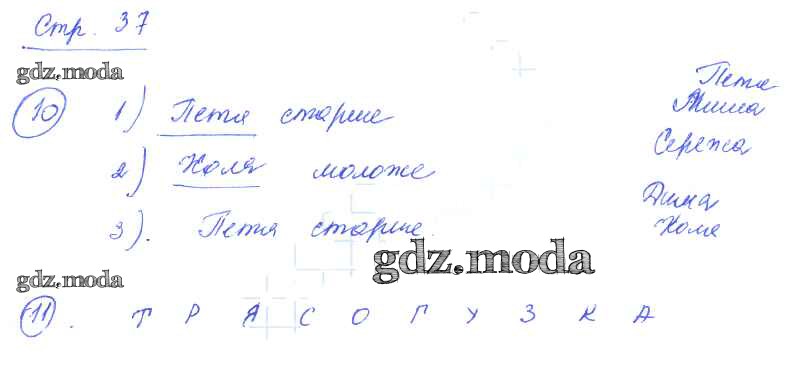 Стр. 37
gdz.moda
10 1) Петя старше
2) Коля моложе
3). Петя старше.
Петя
Миша
Сережа
Дима
Коля
gdz.moda
gdz.moda
11. Т Р Я С О Г У З К А